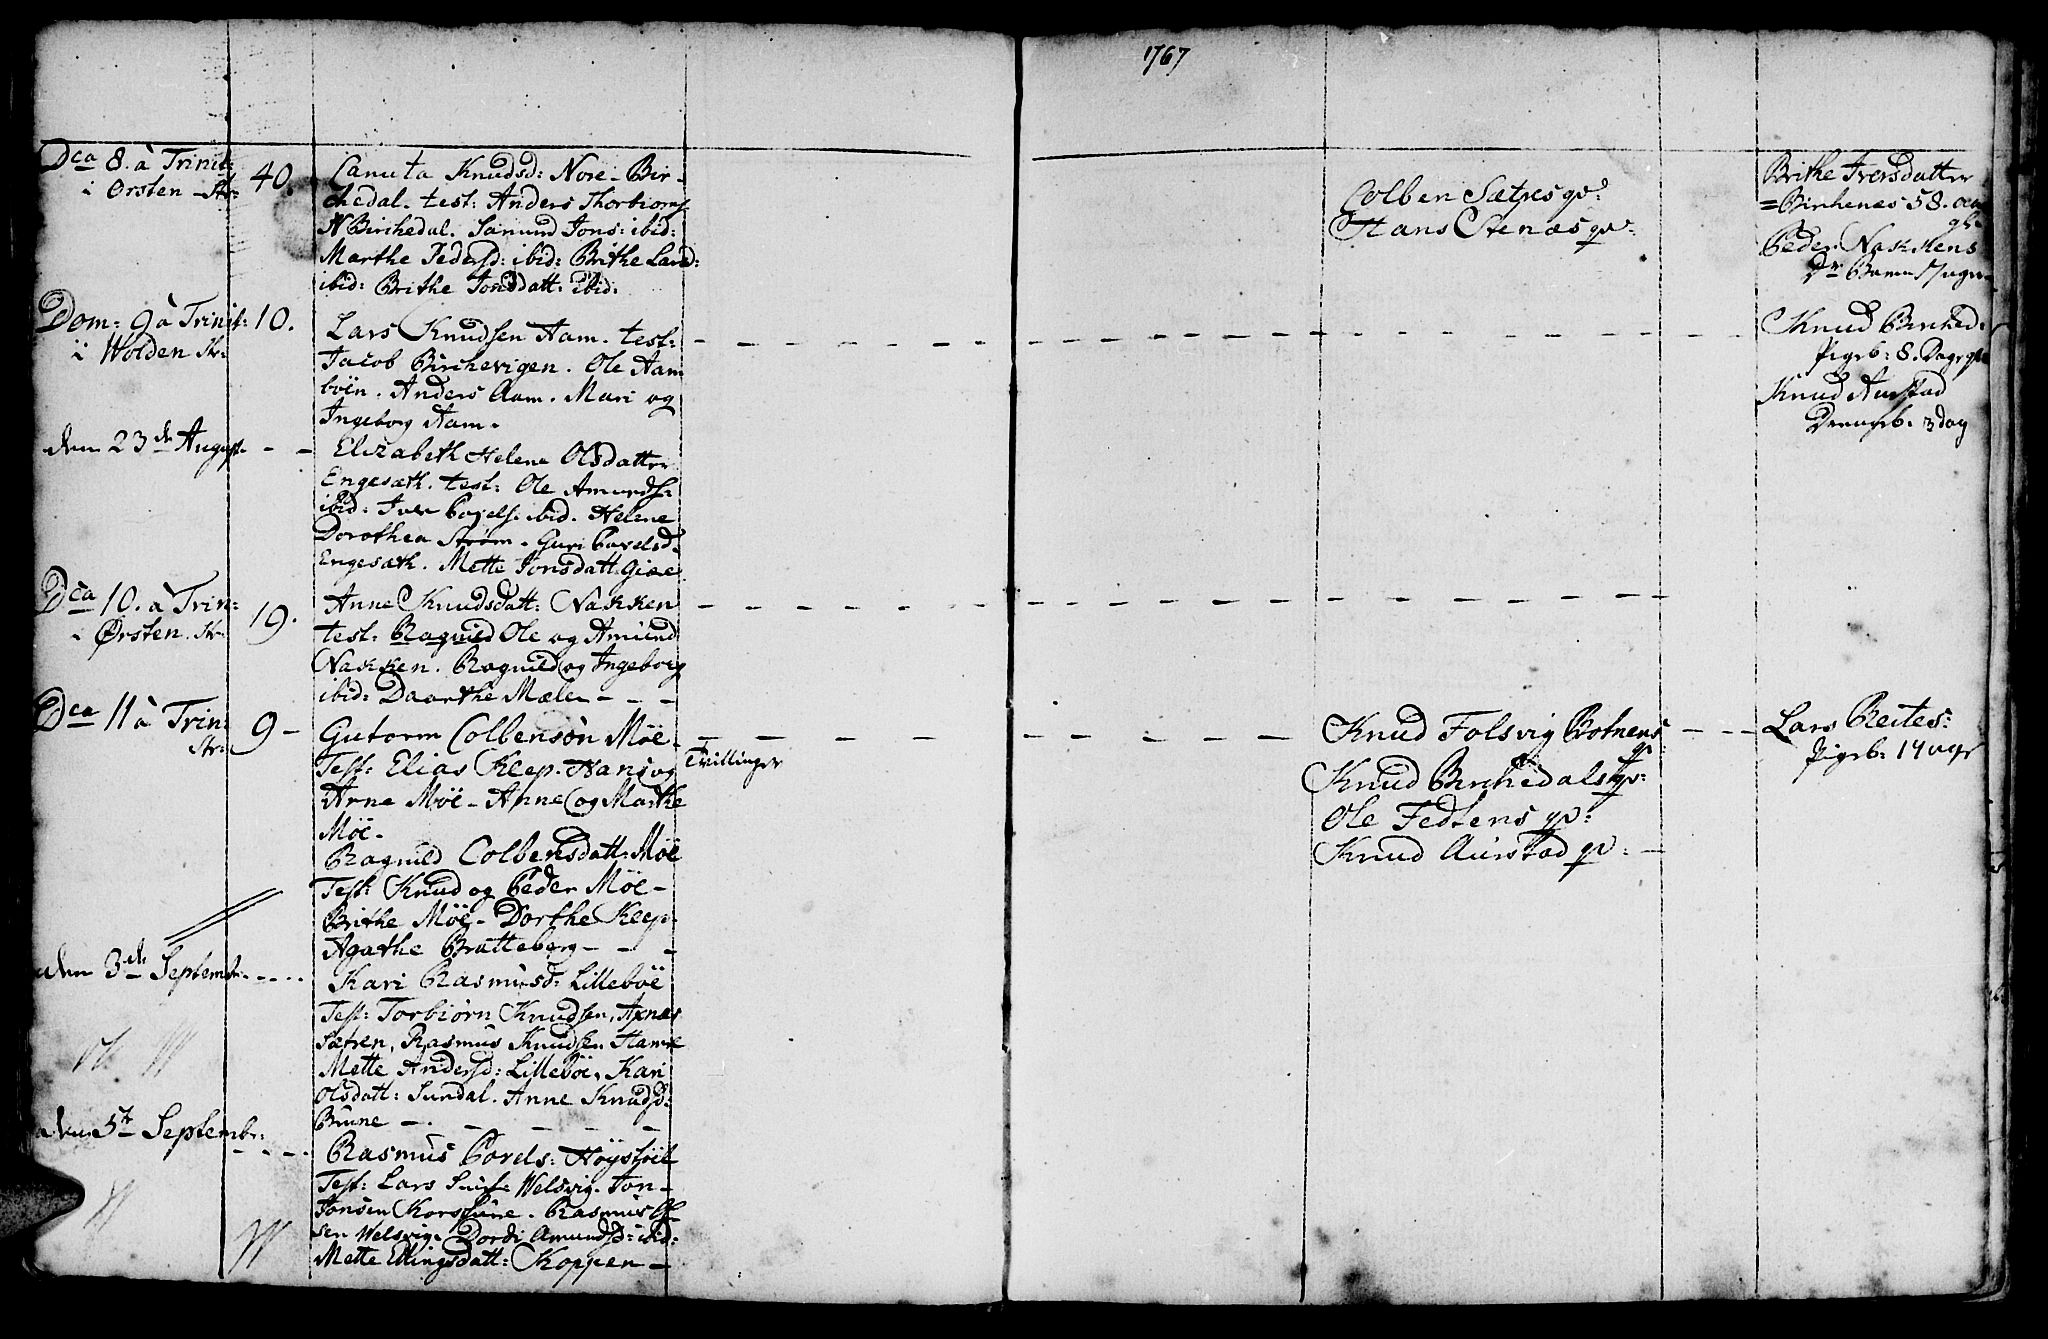 1767
Dca 8. â Trinit:
i Ørsten Str:
40.
Canuta Knudsd: Nore-Bir-
chedal. test: Anders Thorbiorns
N Birchedal. Samund Jons: ibid:
Marthe Pedersd: ibid: Brithe Larsd:
ibid: Brithe Jonsdatt: ibid:
Colben Sætres qv:
Hans Stenæs qv:
Brithe Iversdatter
=Birchenæs 58. aar
gl:
Peder Nakkens
Barn
Dom: 9 â Trinit:
i Wolden Str:
10.
Lars Knudsen Aam. test:
Jacob Birchevigen. Ole Aam
böen. Anders Aam. Mari og
Ingeborg Aam.
Knud Birched:
Pigeb: 8. Dage gl
Knud Aurstad
Drengeb. 3 dag
den 23de August. - -
Elizabeth Helene Olsdatter
Engesæth. test: Ole Amunds:
ibid: Iver Povels: ibid. Helene
Dorothea Strøm. Guri Povelsd:
Engesæth. Mette Jonsdatt. Giære
Dca 10. â Trin:
i Ørsten. Str:
19.
Anne Knudsdatt: Nakken
test: Ragnild Ole og Amund
Nakken. Ragnild og Ingeborg
ibid: Daarthe Mælen - - -
Dca 11 â Trin:
Str:
9 -
Gutorm Colbensön Möe.
Test: Elias Kleep. Hans og
Arne Möe - Anne og Marthe
Möe.
Tvillinger
Ragnild Colbensdatt: Möe
Test: Knud og Peder Möe -
Brithe Möe - Dorthe Kleep.
Agathe Bratteberg - - -
Knud Folsvig Botnens
qv
Knud Birchedals qv:
Ole Fedtens qv:
Knud Aurstad qv: -
Lars Reites:
Pigeb: 14 uger
den 3de Septembr. - - - -
Kari Rasmusd: Lillebøe
Test: Torbiörn Knudsen, Axnæs
Sætren, Rasmus Knudsen Hamre
Mette Andersd: Lillebøe, Kari
Olsdatt: Sundal. Anne Knudsd:
Brune - - - - -
den 5t Septembr:
- - - -
Rasmus Povels: Höysböe
Test: Lars Welsvig. Jon -
Jonsen Korssune. Rasmus Ol-
sen Welsvig. Dordi Amundsd: ibid:
Mette Ellingsdatt: Koppen -